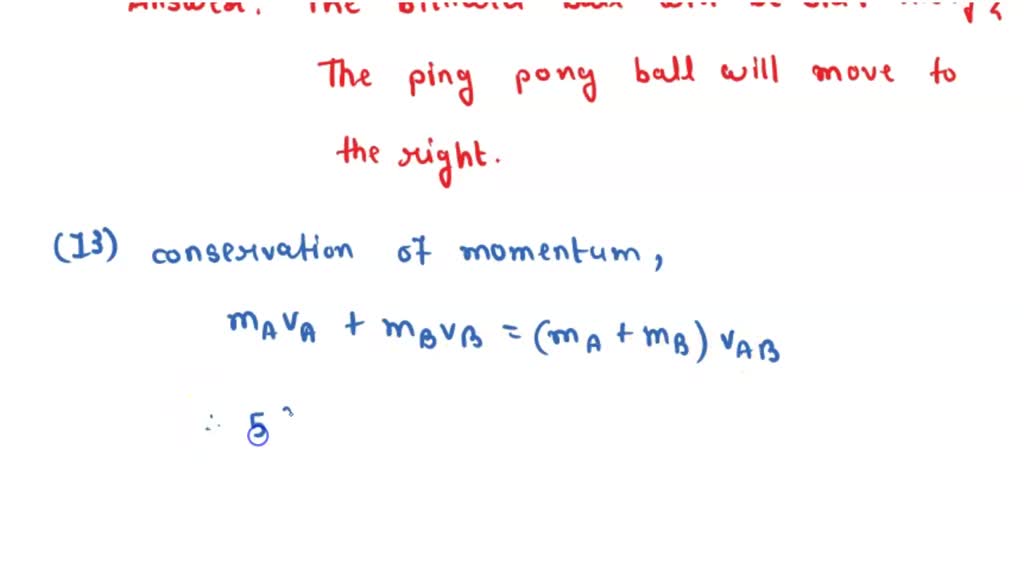 The
The ping pong ball will move to
the right.
(13) conservation of momentum,
mAvA + mBvB = (mA + mB) vAB
∴ 5